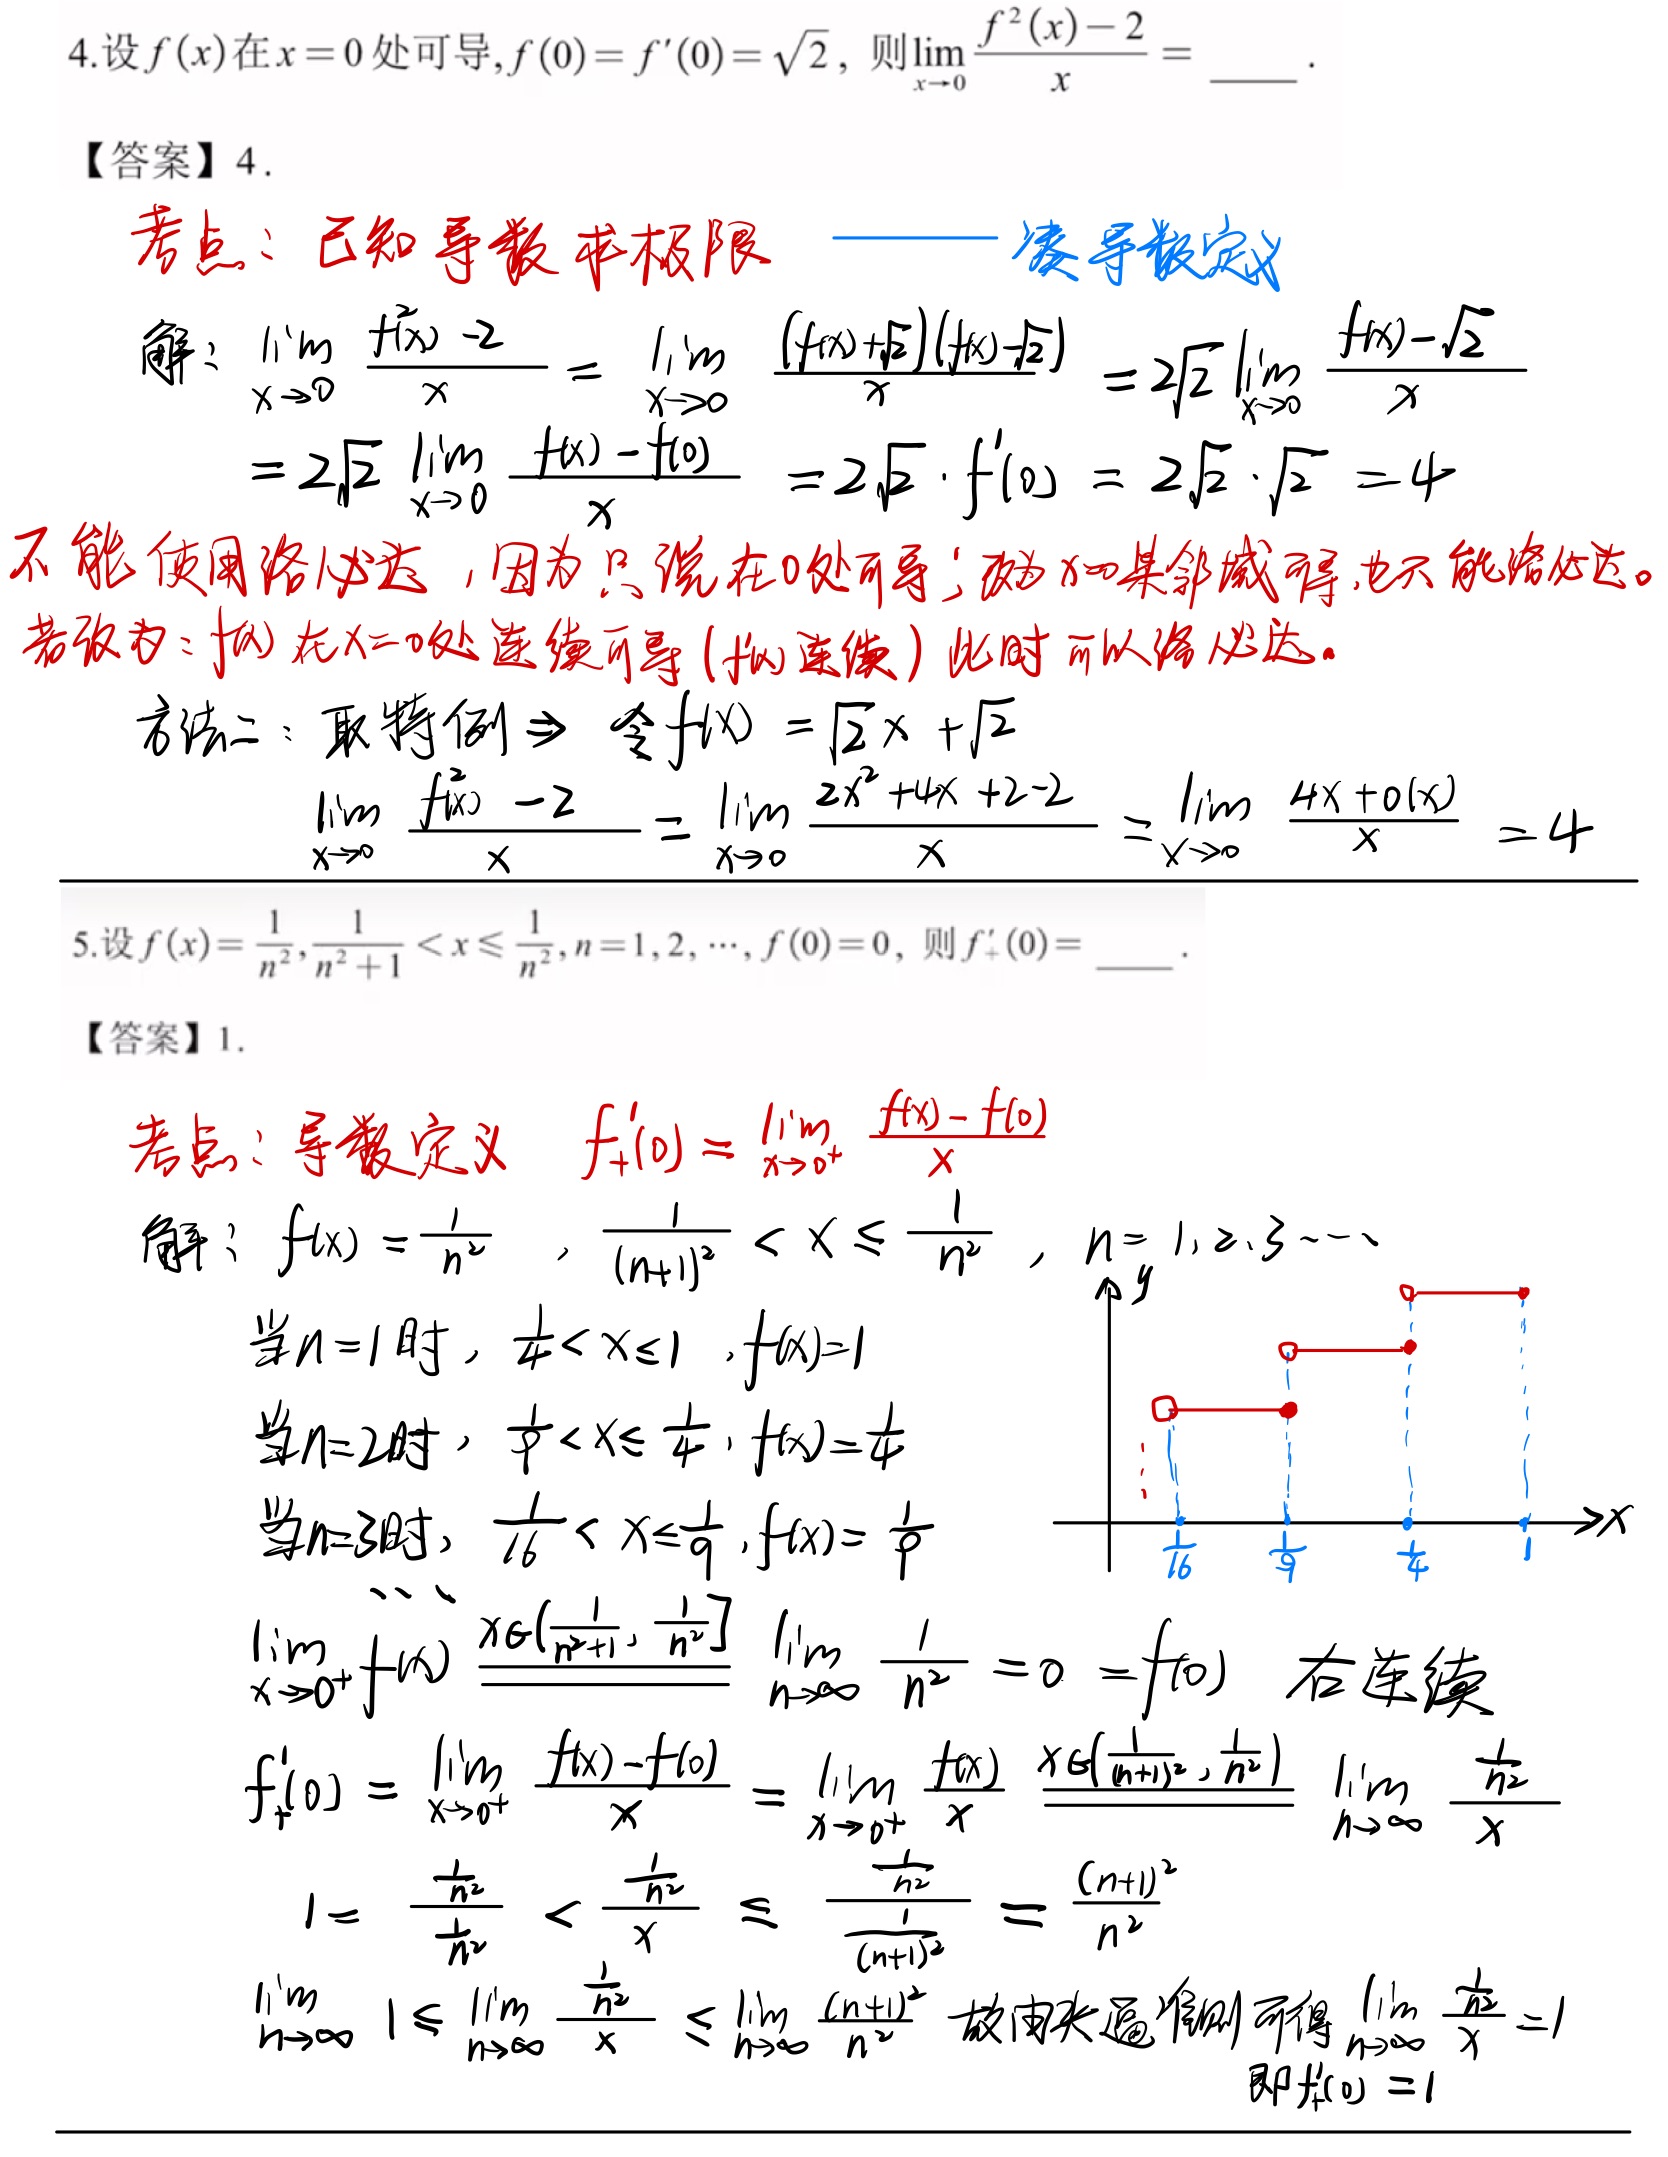 4.设 f(x)在 x=0 处可导, f(0)=f′(0)=√2, 则 lim_{x→0} (f²(x)−2)/x = ____ .
【答案】4.
考点：已知导数求极限 —— 凑导数定义
解：lim_{x→0} (f²(x)−2)/x = lim_{x→0} (f(x)+√2)(f(x)−√2)/x = 2√2 lim_{x→0} (f(x)−√2)/x
= 2√2 lim_{x→0} (f(x)−f(0))/x = 2√2·f′(0) = 2√2·√2 = 4
不能使用洛必达，因为只说在0处可导；改为x=0某邻域可导，也不能洛必达。
若改为：f(x)在x=0处连续可导(f′(x)连续)此时可以洛必达。
方法二：取特例⇒ 令f(x) = √2x+√2
lim_{x→0} (f²(x)−2)/x = lim_{x→0} (2x²+4x+2−2)/x = lim_{x→0} (4x+o(x))/x = 4
5.设 f(x)= 1/n², 1/(n²+1) < x ≤ 1/n², n=1,2,⋯, f(0)=0, 则 f′₊(0)= ____ .
【答案】1.
考点：导数定义 f′₊(0) = lim_{x→0⁺} (f(x)−f(0))/x
解：f(x) = 1/n² , 1/(n+1)² < x ≤ 1/n² , n= 1,2、3⋯
当n=1时，1/4<x≤1，f(x)=1
当n=2时，1/9<x≤1/4，f(x)=1/4
当n=3时，1/16<x≤1/9，f(x)=1/9
⋯
y
x
1/16 1/9 1/4 1
lim_{x→0⁺} f(x) =[x∈(1/(n²+1), 1/n²]]= lim_{n→∞} 1/n² = 0 = f(0) 右连续
f′₊(0) = lim_{x→0⁺} (f(x)−f(0))/x = lim_{x→0⁺} f(x)/x =[x∈(1/(n+1)², 1/n²)]= lim_{n→∞} (1/n²)/x
1 = (1/n²)/(1/n²) < (1/n²)/x ≤ (1/n²)/(1/(n+1)²) = (n+1)²/n²
lim_{n→∞} 1 ≤ lim_{n→∞} (1/n²)/x ≤ lim_{n→∞} (n+1)²/n² 故由夹逼准则可得 lim_{n→∞} (1/n²)/x = 1
即f′₊(0) = 1